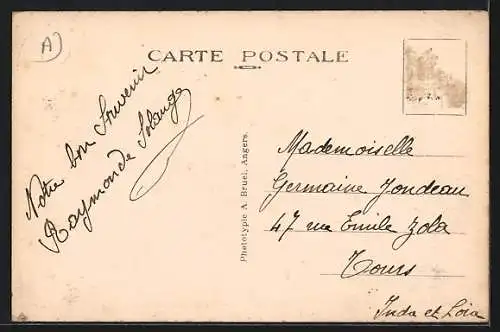 A)
CARTE POSTALE
Notre bon Souvenir
Raymonde Solange
Phototypie A. Bruel, Angers.
Mademoiselle
Germaine Jondeau
47 rue Emile Zola
Tours
Indre et Loire